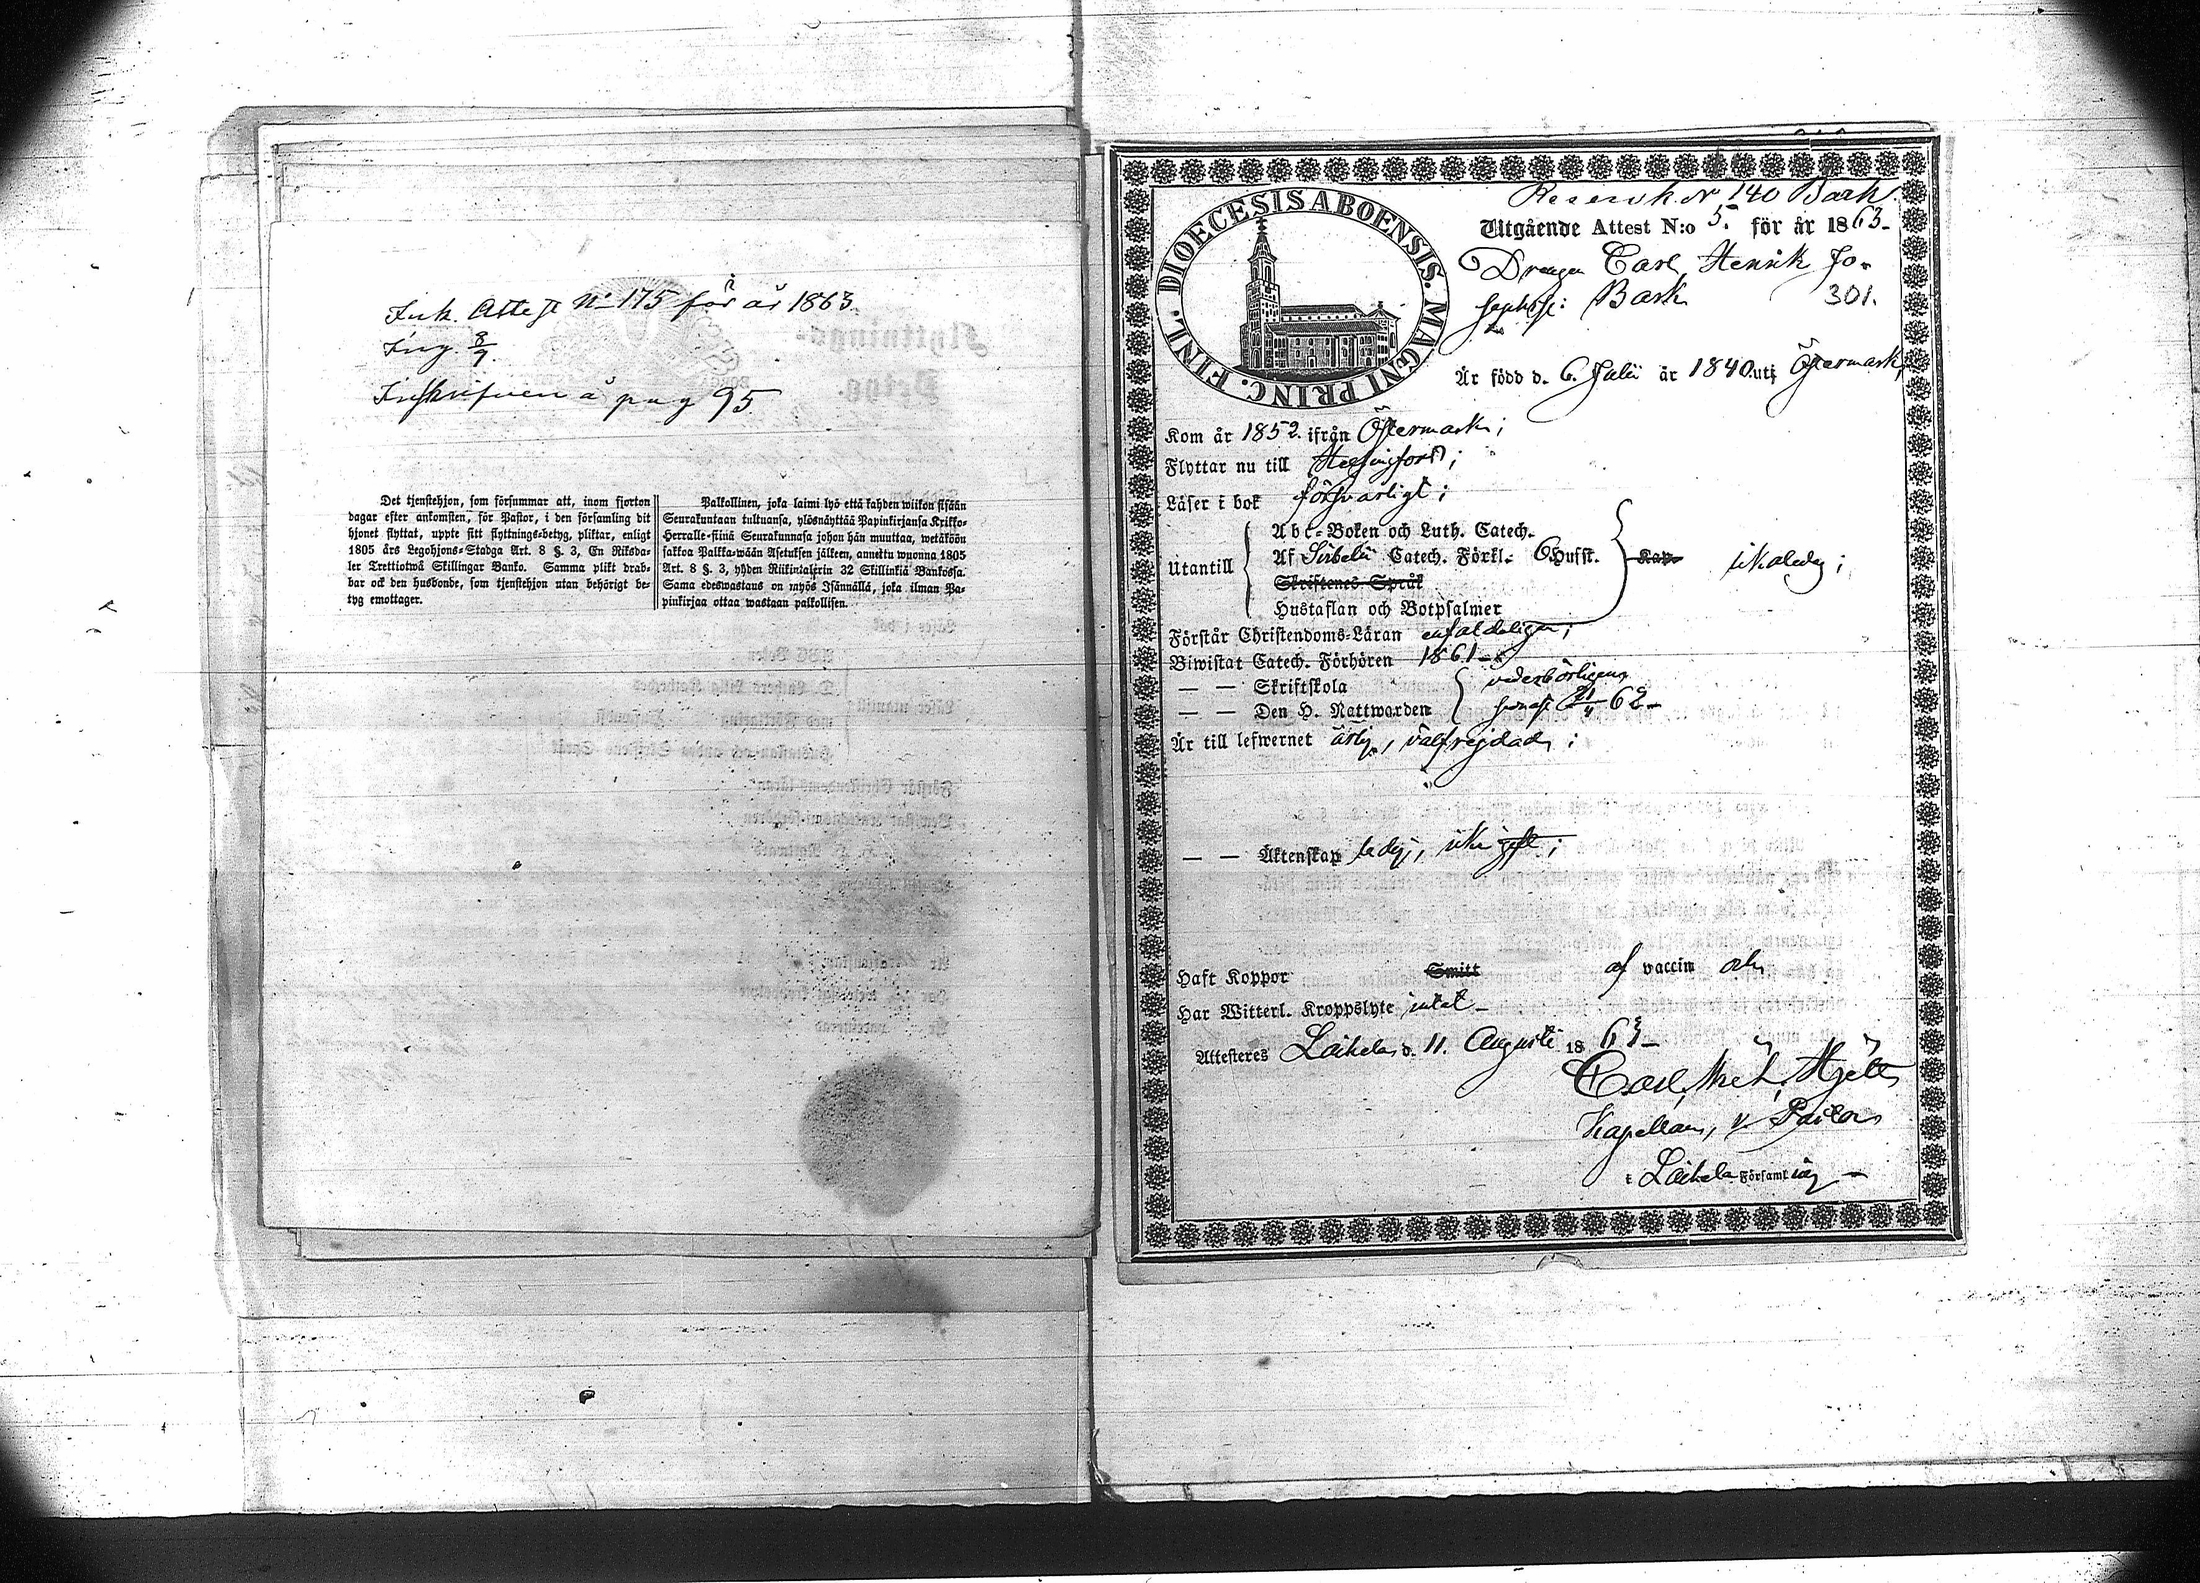 Ink. Attest No 175 för år 1863.
Ing. 8/9.
Inskrifven å pag 95
Det tjenstehjon, som försummar att, inom fjorton
dagar efter ankomsten, för Pastor, i den församling dit
hjonet flyttat, uppte sitt flyttnings-betyg, pliktar, enligt
1805 års Legohjons-Stadga Art. 8 §. 3, En Riksda-
ler Trettiotwå Skillingar Banko. Samma plikt drab-
bar ock den husbonde, som tjenstehjon utan behörigt be-
tyg emottager.
Palkollinen, joka laimi lyö että kahden wiikon sisään
Seurakuntaan tultuansa, ylösnäyttää Papinkirjansa Kirkko-
Herralle siinä Seurakunnasa johon hän muuttaa, wetäköön
sakkoa Palkka-wään Asetuksen jälkeen, annettu wuonna 1805
Art. 8 §. 3, yhden Riikintalerin 32 Skillinkiä Bankossa.
Sama edeswastaus on myös Isännällä, joka ilman Pa-
pinkirjaa ottaa wastaan palkollisen.
DIOECESIS ABOENSIS. MAGNI PRINC. FINL.
No 140 Back.
Utgående Attest N:o 5. för år 1863-
Drengen Carl Henrik Jo-
sephss: Back 301.
Är född d. 6. Julii år 1840. uti Östermark;
Kom år 1852. ifrån Östermark;
Flyttar nu till Helsingfors;
Läser i bok försvarligt;
Utantill
Abc-Boken och Luth. Catech.
Af Svebelii Catech. Förkl. 6 Hufst. Kap.
Skriftenes Språk
Hustaflan och Botpsalmer
Förstår Christendoms-Läran enfaldeligen;
Biwistat Catech. Förhören 1861-
— — Skriftskola vederbörligen
— — Den H. Nattwarden senast 62-
Är till lefwernet ärlig, välfrejdad;
— — Äktenskap ledig, icke gift;
Haft Koppor Smitt af vaccin
Har Witterl. Kroppslyte intet-
Attesteres Laihela d. 11. Augusti 1863-
Carl Hjelt
Kapellan, v. Pastor
i Laihela Församling